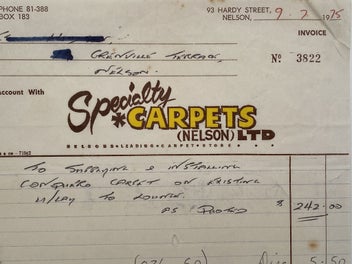 PHONE 81-388
BOX 183
93 HARDY STREET,
NELSON, 9. 7. 1975
INVOICE
Nº 3822
GRENVILLE TERRACE,
NELSON.
Account With
Specialty
*CARPETS
(NELSON) LTD
NELSONS • LEADING • CARPET • STORE
TO SUPPLYING & INSTALLING
CARPET ON EXISTING
U/LAY TO LOUNGE.
AS QUOTED $ 242.00
5.50